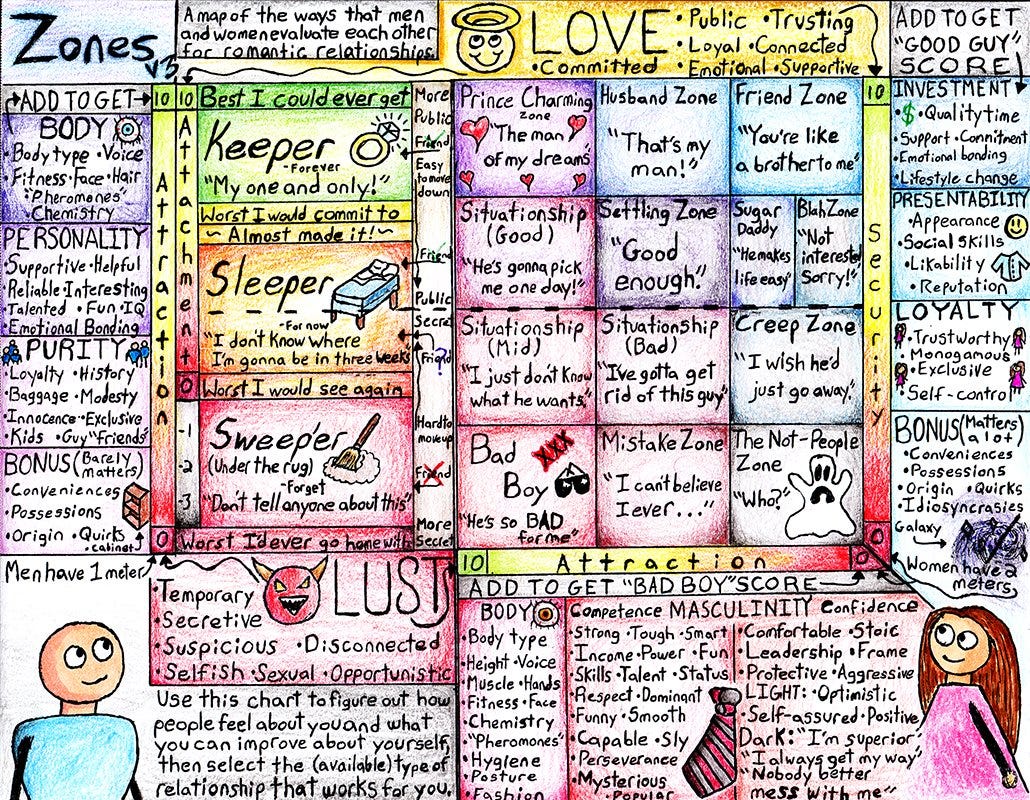 Zones
v3
A map of the ways that men
and women evaluate each other
for romantic relationships.
LOVE
• Public • Trusting
• Loyal • Connected
• Committed • Emotional • Supportive
ADD TO GET
"GOOD GUY"
SCORE
ADD TO GET
10
10
BODY
• Body type • Voice
• Fitness • Face • Hair
• "Pheromones"
• Chemistry
PERSONALITY
Supportive • Helpful
Reliable • Interesting
Talented • Fun • IQ
• Emotional Bonding
PURITY
• Loyalty • History
• Baggage • Modesty
Innocence • Exclusive
• Kids • Guy "Friends"
BONUS (Barely
matters)
• Conveniences
• Possessions
• Origin • Quirks
• cabinet
Attraction
0
Attachment
0
-1
-2
-3
Best I could ever get
Keeper
-Forever
"My one and only!"
Worst I would commit to
~ Almost made it! ~
Sleeper
-For now
"I don't know where
I'm gonna be in three weeks"
Worst I would see again
Sweeper
(Under the rug)
-Forget
"Don't tell anyone about this"
Worst I'd ever go home with
More
Public
Friend
Easy
to move
down
Friend
Public
Secret
Friend?
Hard to
move up
Friend
More
Secret
Prince Charming
zone
"The man
of my dreams"
Husband Zone
"That's my
man!"
Friend Zone
"You're like
a brother to me"
Situationship
(Good)
"He's gonna pick
me one day!"
Settling Zone
"Good
enough."
Sugar
Daddy
"He makes
life easy"
Blah Zone
"Not
interested
Sorry!"
Situationship
(Mid)
"I just don't know
what he wants."
Situationship
(Bad)
"I've gotta get
rid of this guy"
Creep Zone
"I wish he'd
just go away."
Bad
XXX
Boy
"He's so BAD
for me"
Mistake Zone
"I can't believe
I ever..."
The Not-People
Zone
"Who?"
10
Security
0
10
Attraction
0
INVESTMENT
• $ • Quality time
• Support • Commitment
• Emotional bonding
• Lifestyle change
PRESENTABILITY
• Appearance
• Social Skills
• Likability
• Reputation
LOYALTY
• Trustworthy
• Monogamous
• Exclusive
• Self-control
BONUS (Matters
a lot)
• Conveniences
• Possessions
• Origin • Quirks
• Idiosyncrasies
Galaxy
Women have 2
meters
Men have 1 meter
• Temporary
• Secretive
LUST
• Suspicious • Disconnected
• Selfish • Sexual • Opportunistic
Use this chart to figure out how
people feel about you and what
you can improve about yourself,
then select the (available) type of
relationship that works for you.
ADD TO GET "BAD BOY" SCORE
BODY
• Body type
• Height • Voice
• Muscle • Hands
• Fitness • Face
• Chemistry
• "Pheromones"
• Hygiene
• Posture
• Fashion
Competence MASCULINITY Confidence
• Strong • Tough • Smart
• Income • Power • Fun
• Skills • Talent • Status
• Respect • Dominant
• Funny • Smooth
• Capable • Sly
• Perseverance
• Mysterious
• Popular
• Comfortable • Stoic
• Leadership • Frame
• Protective • Aggressive
LIGHT: • Optimistic
• Self-assured • Positive
Dark: "I'm superior"
"I always get my way"
"Nobody better
mess with me"